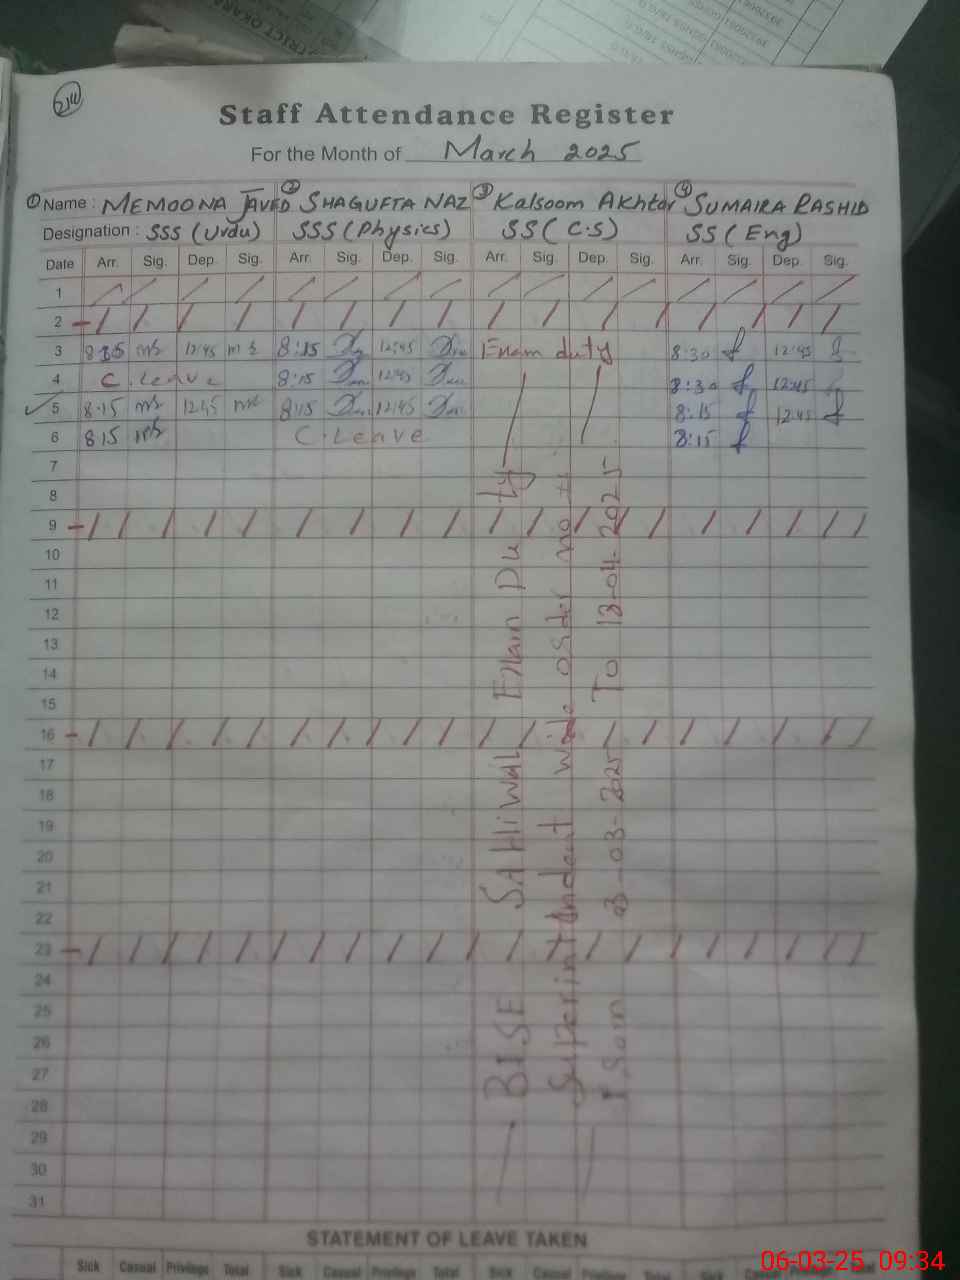 Staff Attendance Register
For the Month of March 2025
① Name : MEMOONA JAVED ② SHAGUFTA NAZ ③ Kalsoom Akhtar ④ SUMAIRA RASHID
Designation : SSS (Urdu) SSS (Physics) SS (C.S) SS (Eng)
Date Arr. Sig. Dep. Sig. Arr. Sig. Dep. Sig. Arr. Sig. Dep. Sig. Arr. Sig. Dep. Sig.
1
2
3 12:45 8:15 12:45 Exam duty 8:30 12:45
4 C. Leave 8:15 12:45 8:30 12:45
5 8:15 12:45 8:15 12:45 8:15 12:45
6 8:15 C. Leave 8:15
7
8
9
10
11
12
13
14
15
16
17
18
19
20
21
22
23
24
25
26
27
28
29
30
31
BISE SAHIWAL Exam Duty
Superintendent wide order no
From 3-03-2025 To 13-04-2025
STATEMENT OF LEAVE TAKEN
Sick Casual Privilege Total Sick Casual Privilege Total Sick Casual Privilege Total
06-03-25 09:34